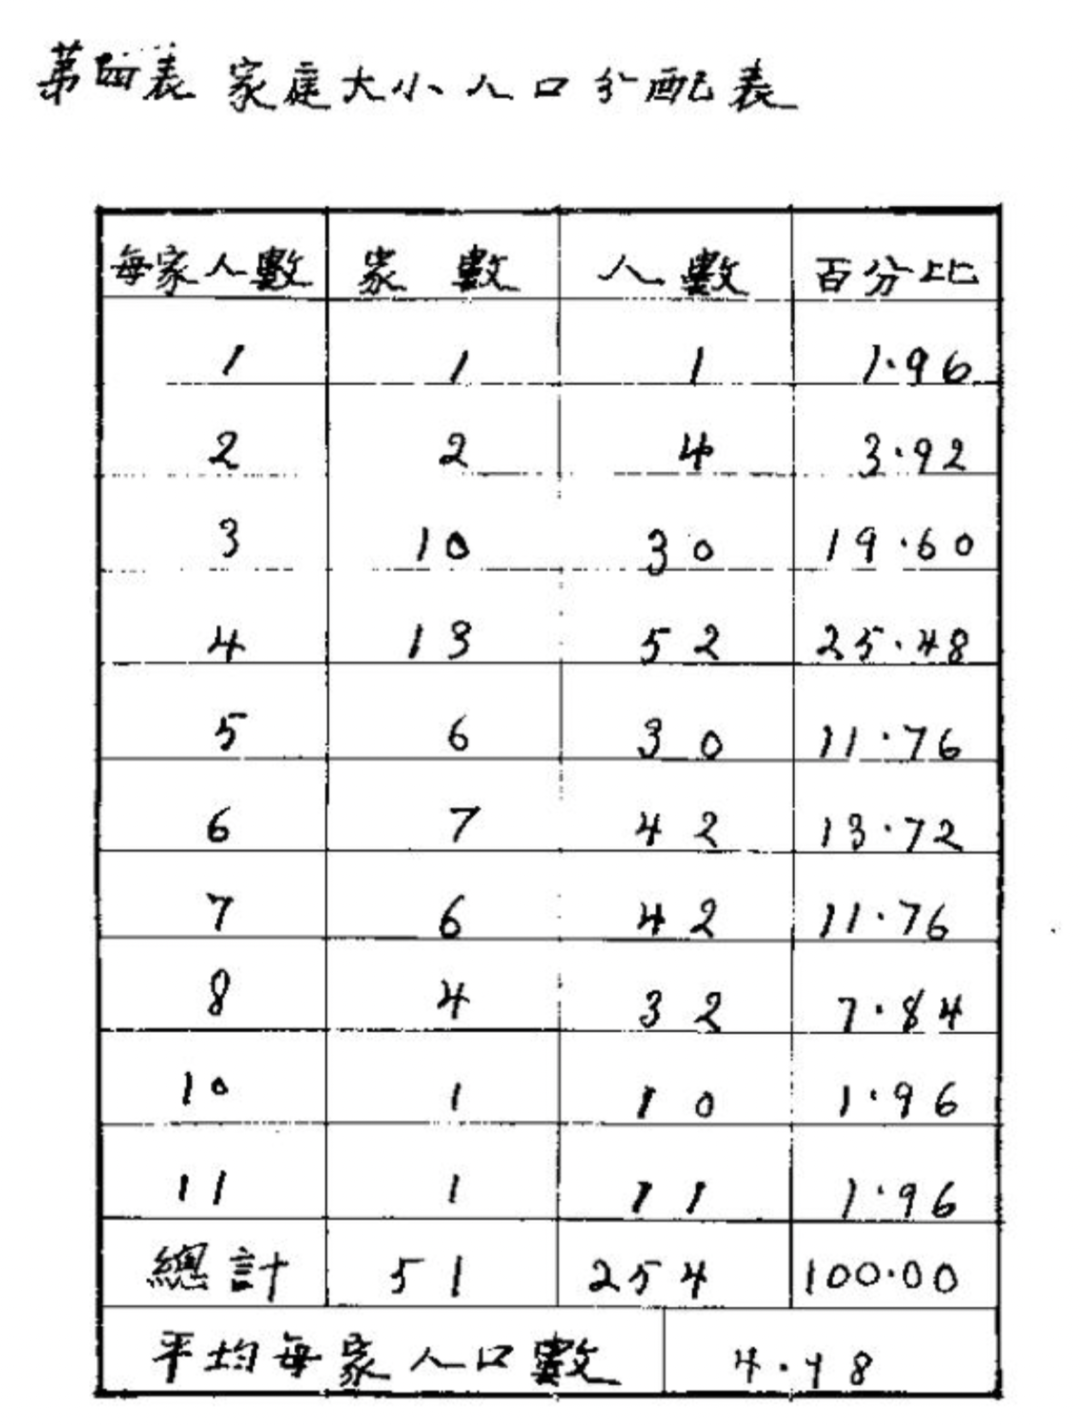 第四表 家庭大小人口分配表
每家人數 家數 人數 百分比
1 1 1 1.96
2 2 4 3.92
3 10 30 19.60
4 13 52 25.48
5 6 30 11.76
6 7 42 13.72
7 6 42 11.76
8 4 32 7.84
10 1 10 1.96
11 1 11 1.96
總計 51 254 100.00
平均每家人口數 4.98